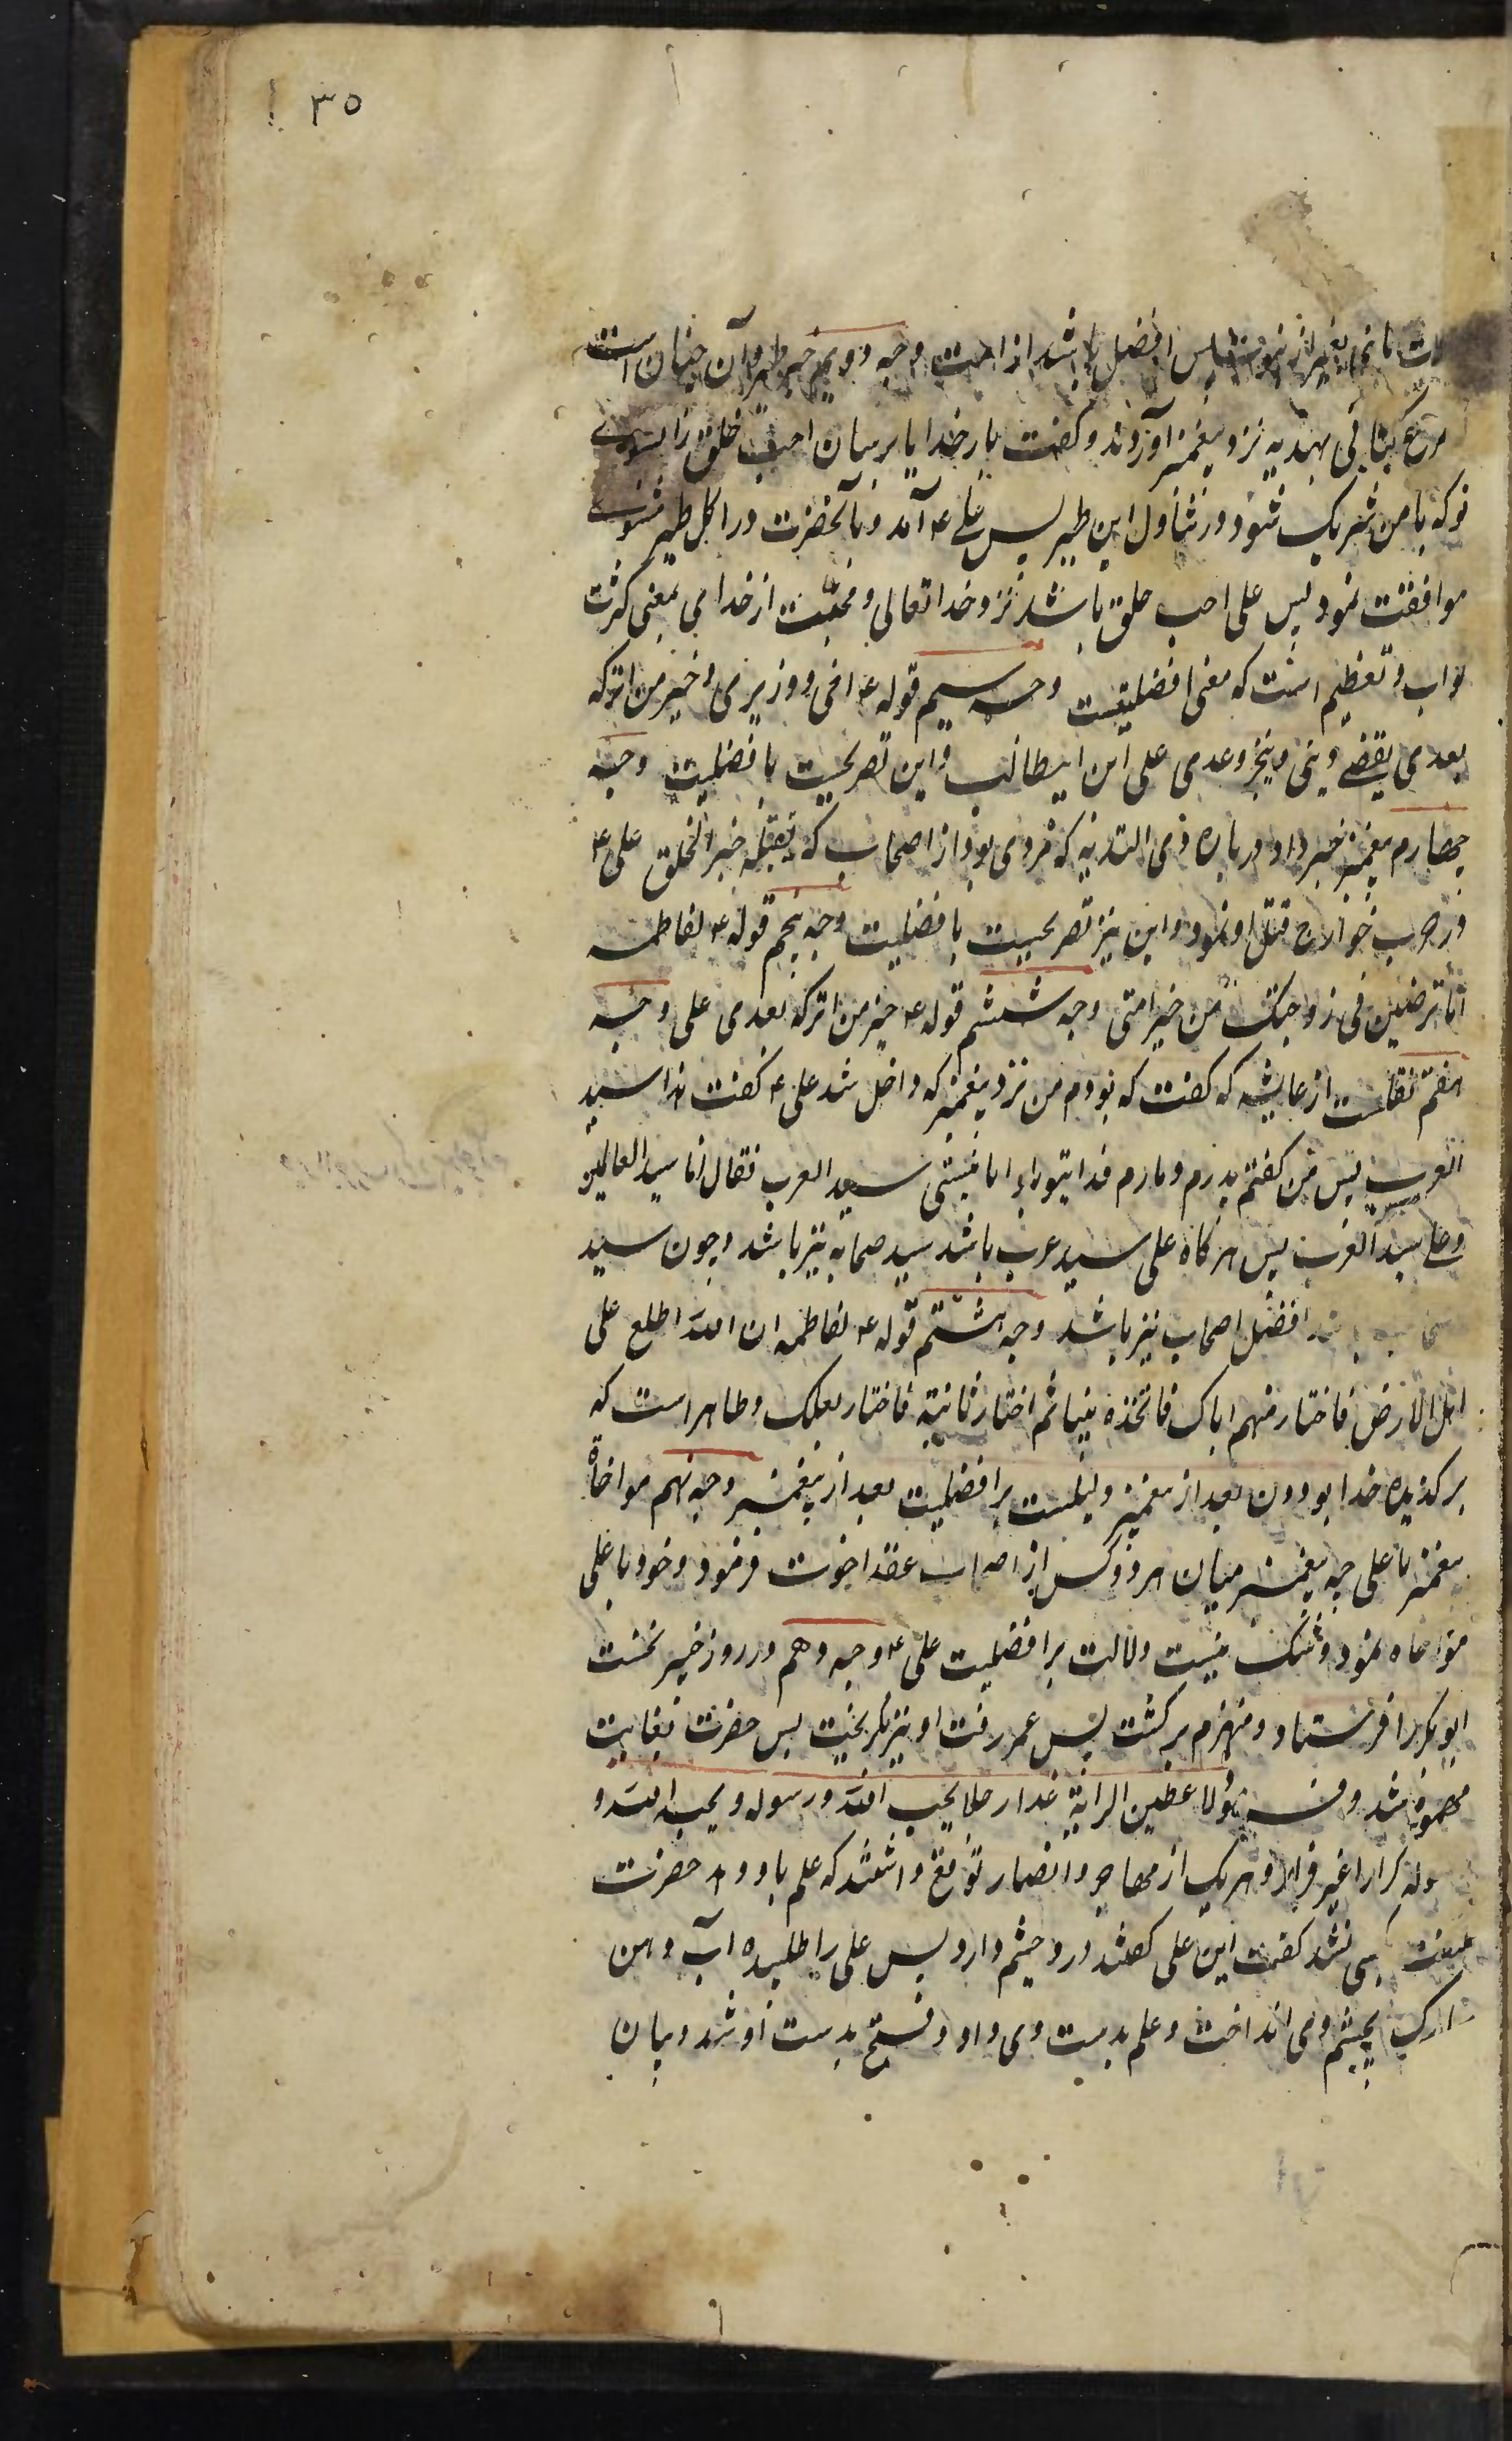 ۳۵
پس افضل باشد از امت وجه دویم خبر طیر و آن چنان است
مرغ کبابی بهدیه نزد پیغمبر آوردند و کفت بار خدایا برسان احب خلق را بسوی
تو که با من شریک شود در تناول این طیر پس علی ع آمد و با آنحضرت در اکل طیر مشوی
موافقت نمود پس علی احب خلق باشد نزد خدا تعالی و محبت از خدا بمعنی کثرت
ثواب و تعظیم است که معنی افضلیتست وجه سیم قوله ع اخی و وزیری و خیر من اترکه
بعدی یقضی دینی و ینجز وعدی علی ابن ابیطالب و این تصریحست بافضلیت وجه
چهارم پیغمبر خبر داد در باره ذی الثدیه که مردی بود از اصحاب که یقتله خیر الخلق علی ع
در حرب خوارج قتل او نمود و این نیز تصریحست بافضلیت وجه پنجم قوله ع لفاطمه
اما ترضین انی زوجتک من خیر امتی وجه ششم قوله ع خیر من اترکه بعدی علی وجه
هفتم نقلست از عایشه که کفت که بودم من نزد پیغمبر که داخل شد علی ع کفت هذا سید
العرب پس من کفتم پدرم و مادرم فدای تو باد اما نیستی سید العرب فقال انا سید العالمین
و علی سید العرب پس هرکاه علی سید عرب باشد سید صحابه نیز باشد و چون سید
باشد افضل اصحاب نیز باشد وجه هشتم قوله ع لفاطمه ان الله اطلع علی
اهل الارض فاختار منهم اباک فاتخذه نبیا ثم اختار ثانیة فاختار بعلک و ظاهر است که
برکزیده خدا بودن بعد از پیغمبر دلیلست بر افضلیت بعد از پیغمبر وجه نهم مواخاة
پیغمبر با علی چه پیغمبر میان هر دو کس از اصحاب عقد اخوت فرمود و خود با علی
مواخاه نمود و شک نیست دلالت بر افضلیت علی ع وجه دهم در روز خیبر نخست
ابوبکر را فرستاد و منهزم برکشت پس عمر رفت او نیز بکریخت پس حضرت بغایت
شد و لاعطین الرایة غدا رجلا یحب الله و رسوله و یحبه الله و
رسوله کرارا غیر فرار و هر یک از مهاجر و انصار توقع داشتند که علم باو دهد حضرت
ملتفت کسی نشد کفت این علی کفتند درد چشم دارد پس علی را طلبیده آب دهن
مبارک بچشم وی انداخت و علم بدست وی داد و فتح بدست او شد و بیان